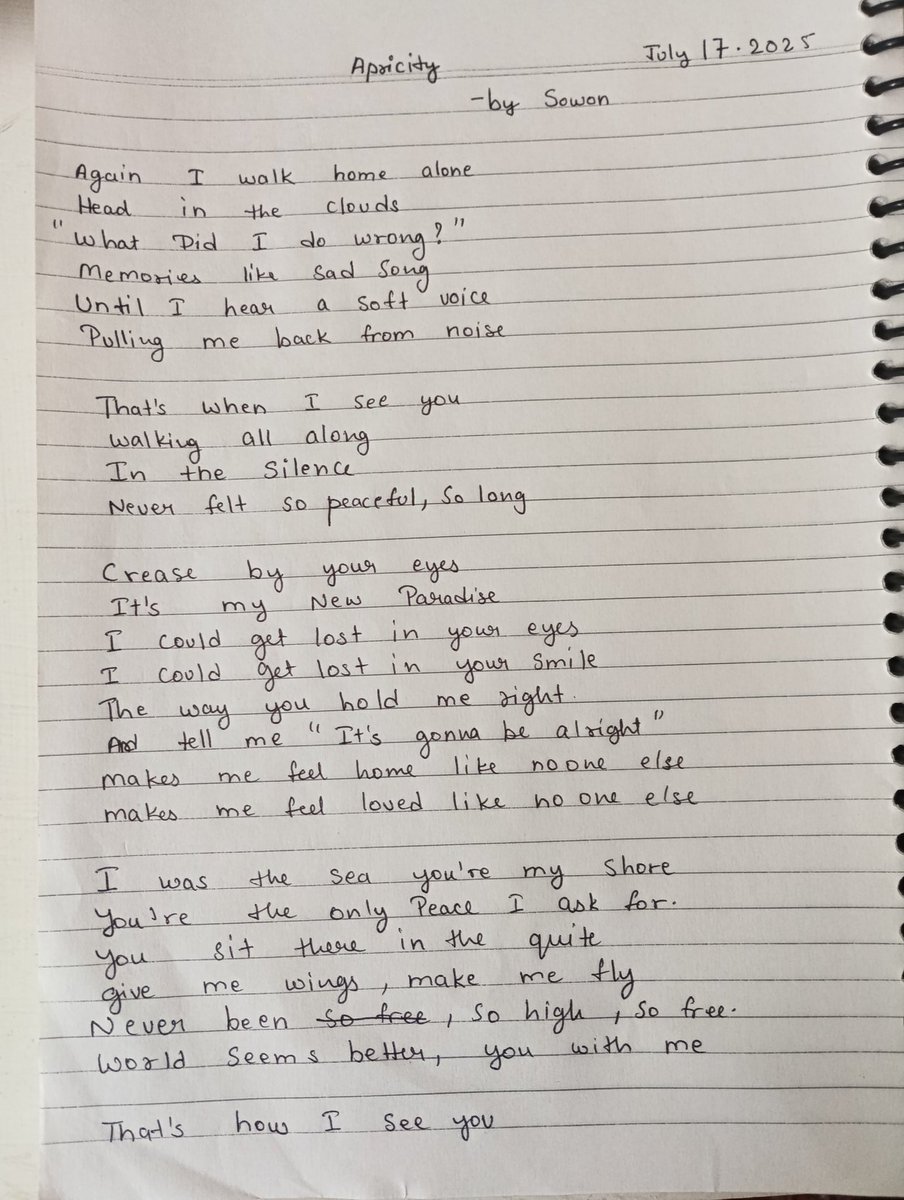 July 17.2025
Apricity
-by Sowon
Again I walk home alone
Head in the clouds
"What Did I do wrong?"
Memories like sad song
Until I hear a soft voice
Pulling me back from noise
That's when I see you
walking all along
In the silence
Never felt so peaceful, so long
Crease by your eyes
It's my New Paradise
I could get lost in your eyes
I could get lost in your smile
The way you hold me right.
And tell me "It's gonna be alright"
makes me feel home like no one else
makes me feel loved like no one else
I was the sea you're my shore
You're the only Peace I ask for.
You sit there in the quite
give me wings, make me fly
Never been so free, so high, so free.
World seems better, you with me
That's how I see you